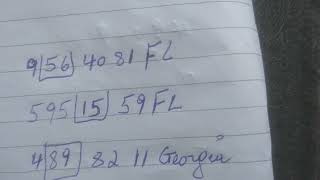 9 56 40 81 FL
595 15 59 FL
4 89 82 11 Georgia